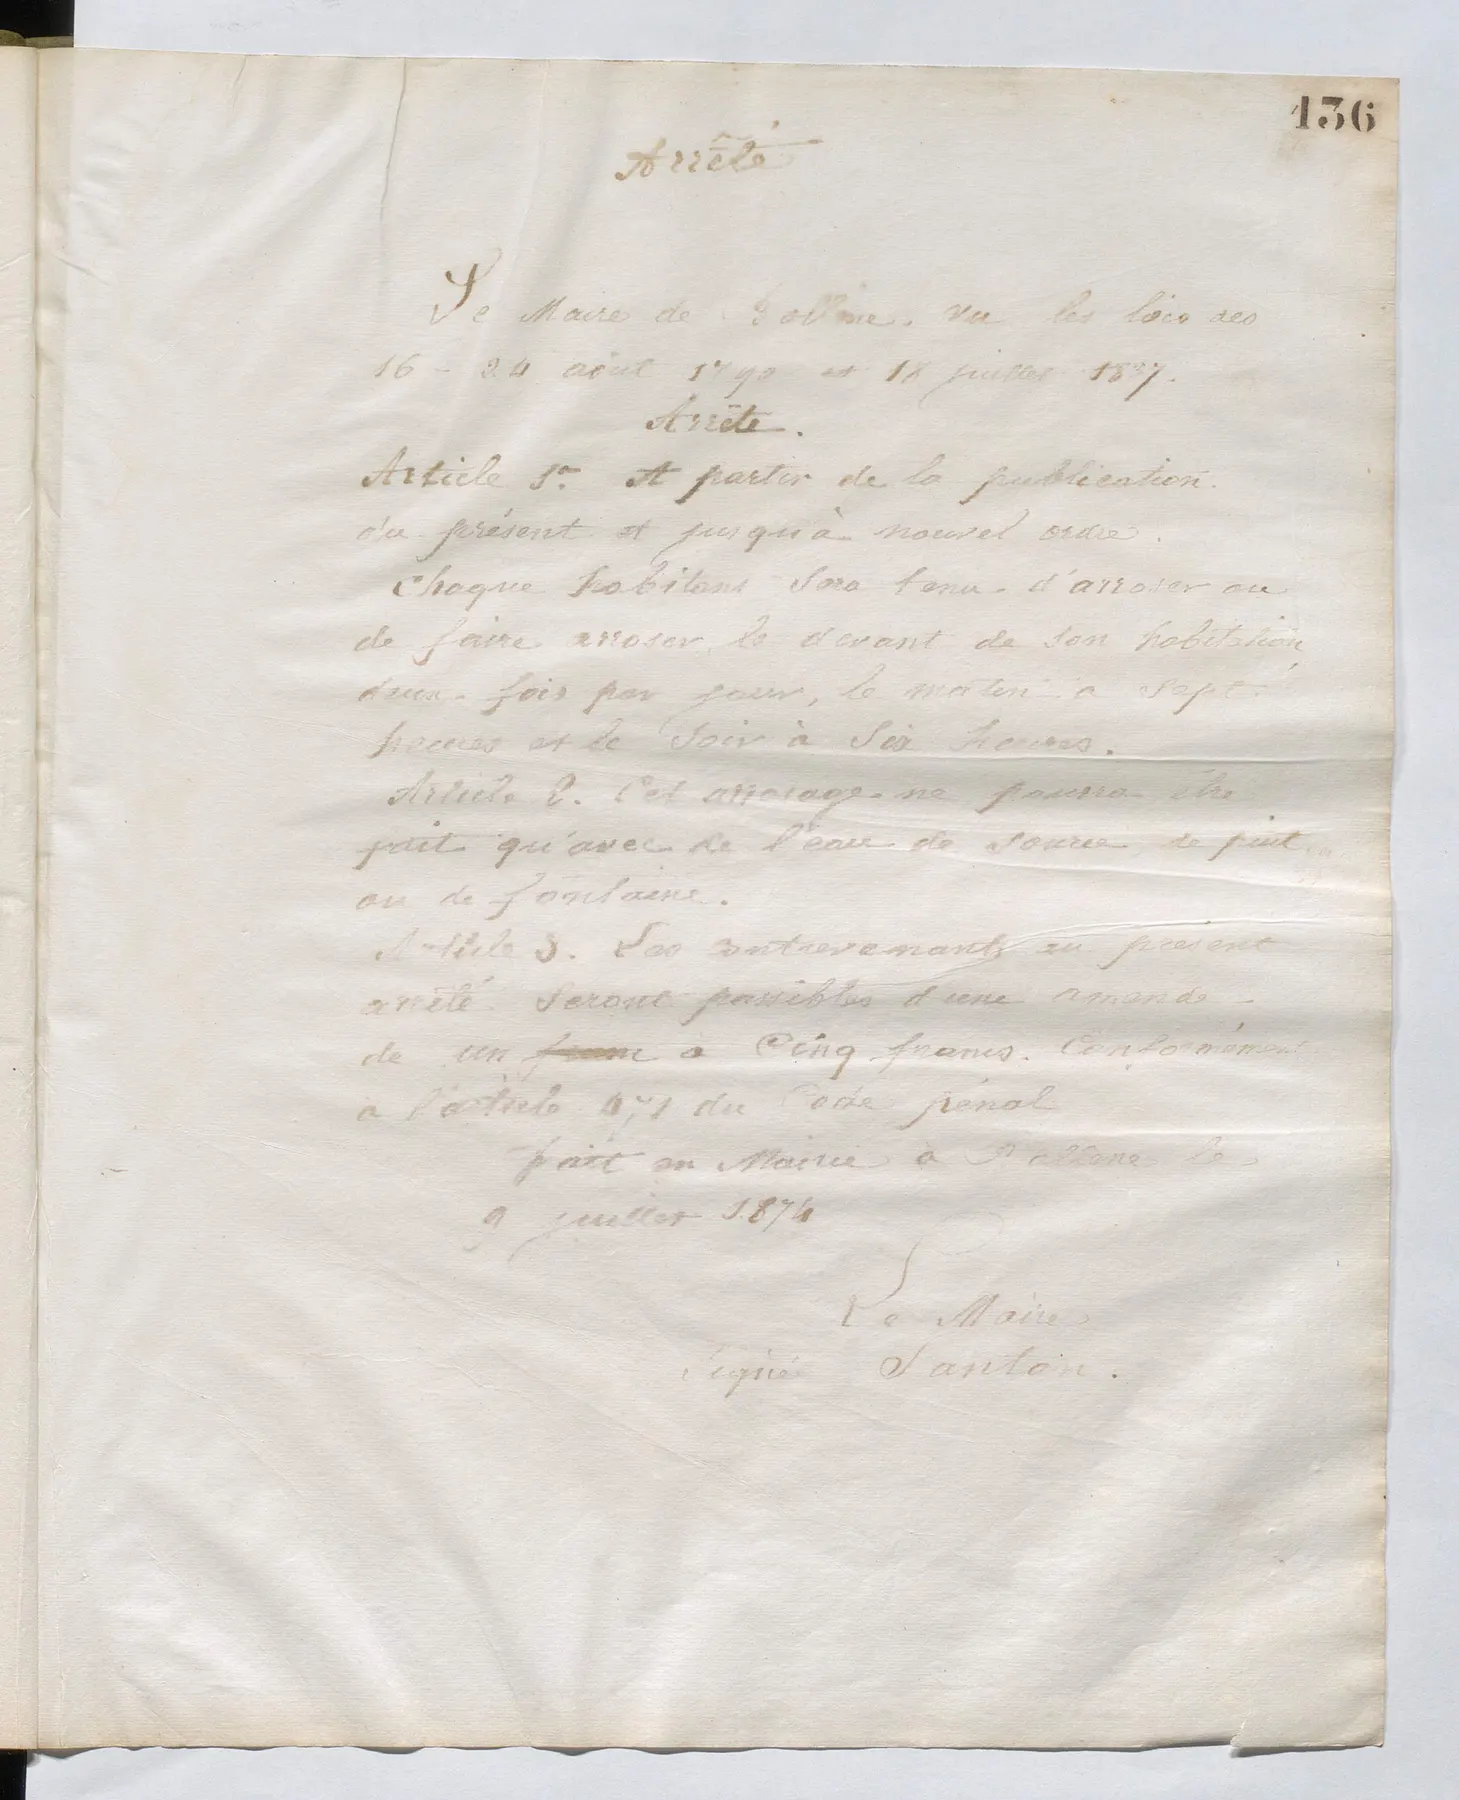 136
Arrêté
Le Maire de Bollène. Vu les lois des
16 - 24 août 1790 et 18 juillet 1837.
Arrête.
Article 1er. A partir de la publication
du présent et jusqu'à nouvel ordre.
Chaque habitant sera tenu d'arroser ou
de faire arroser le devant de son habitation
deux fois par jour, le matin à sept
heures et le soir à six heures.
Article 2. Cet arrosage ne pourra être
fait qu'avec de l'eau de source, de puit
ou de fontaine.
Article 3. Les contrevenants au présent
arrêté seront passibles d'une amende
de un franc à cinq francs. Conformément
à l'article 471 du Code pénal
fait en Mairie à Bollène le
9 juillet 1874
Le Maire
Signé Santon.